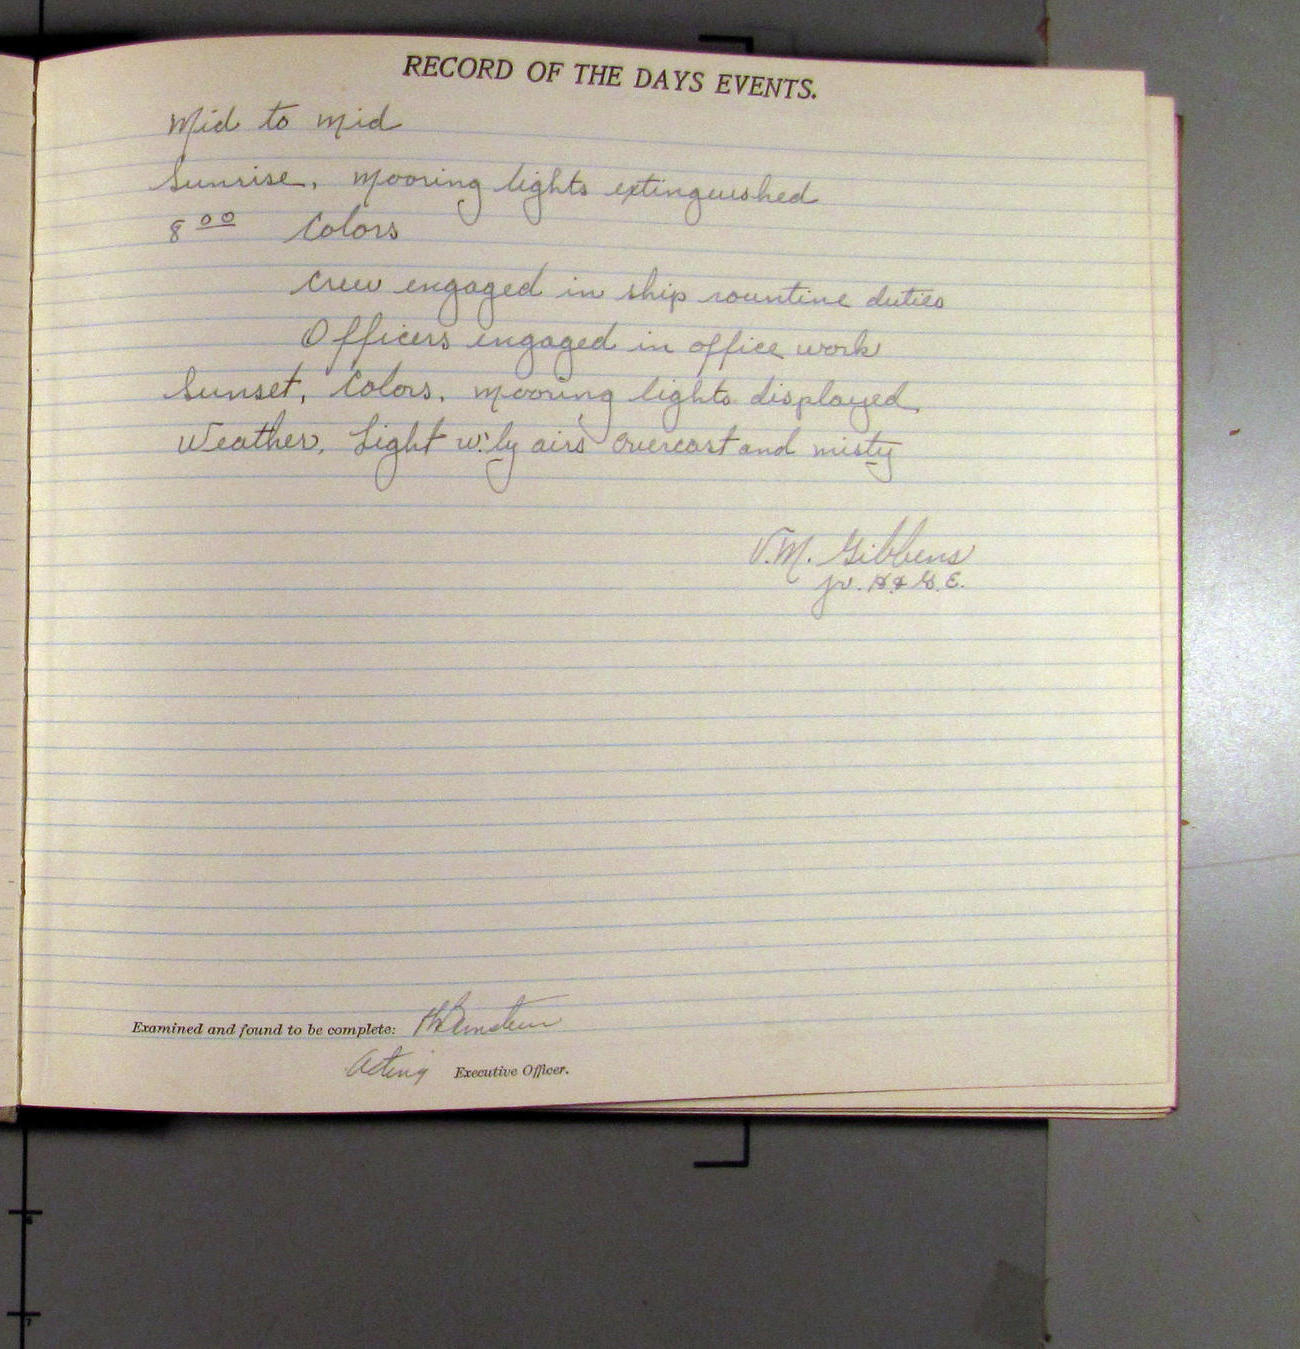 RECORD OF THE DAYS EVENTS.
Mid to Mid
Sunrise, Mooring lights extinguished
8 00 Colors
Crew engaged in ship rountine duties
Officers engaged in office work
Sunset, Colors, mooring lights displayed,
Weather, Light w'ly airs overcast and misty
V.M. Gibbens
jr. H. & G. E.
Examined and found to be complete:
Acting Executive Officer.